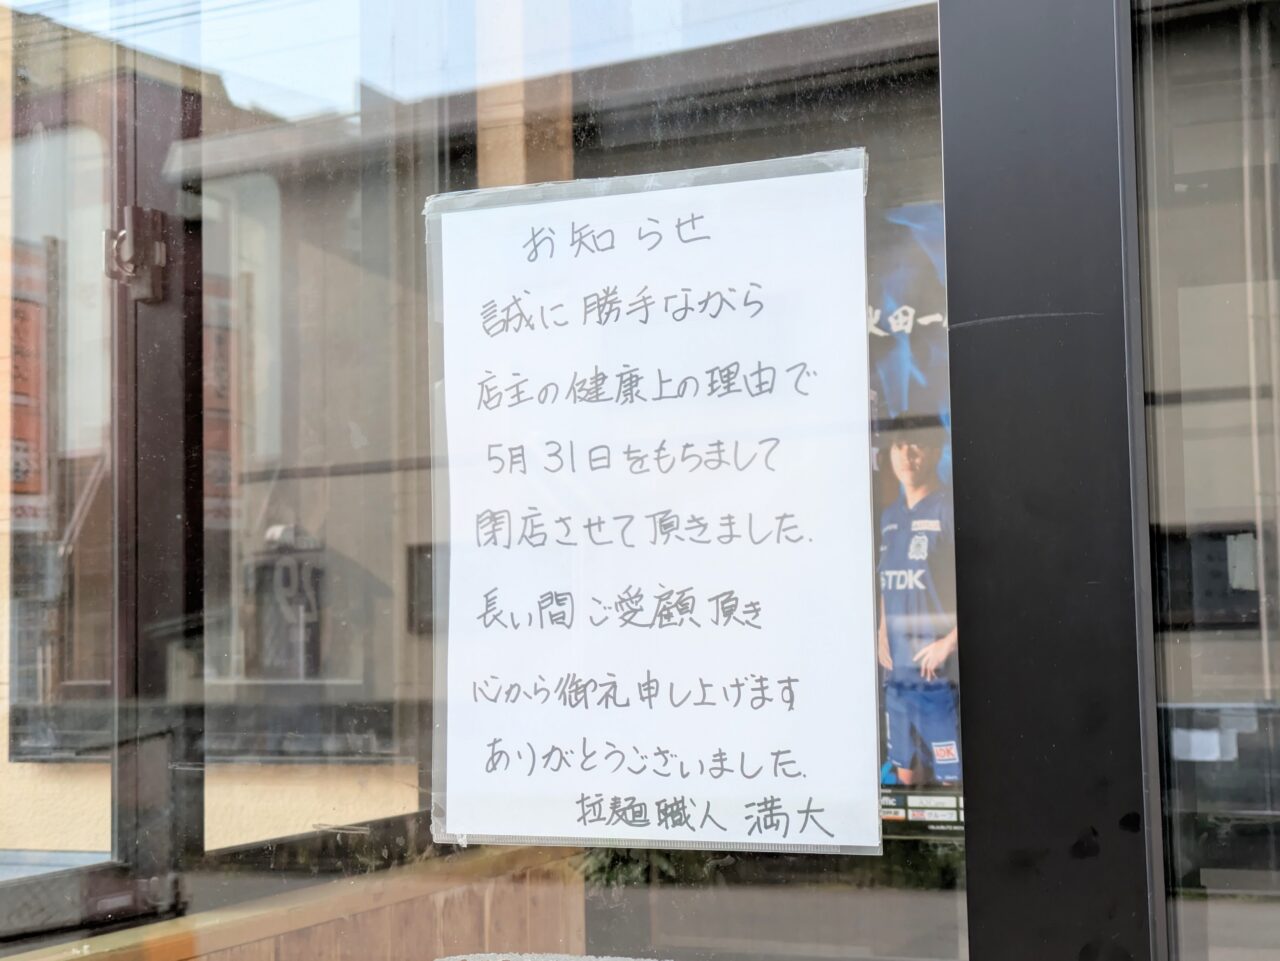 お知らせ
誠に勝手ながら
店主の健康上の理由で
5月31日をもちまして
閉店させて頂きました.
長い間ご愛顧頂き
心から御礼申し上げます
ありがとうございました.
拉麺職人 満大
田一
TDK